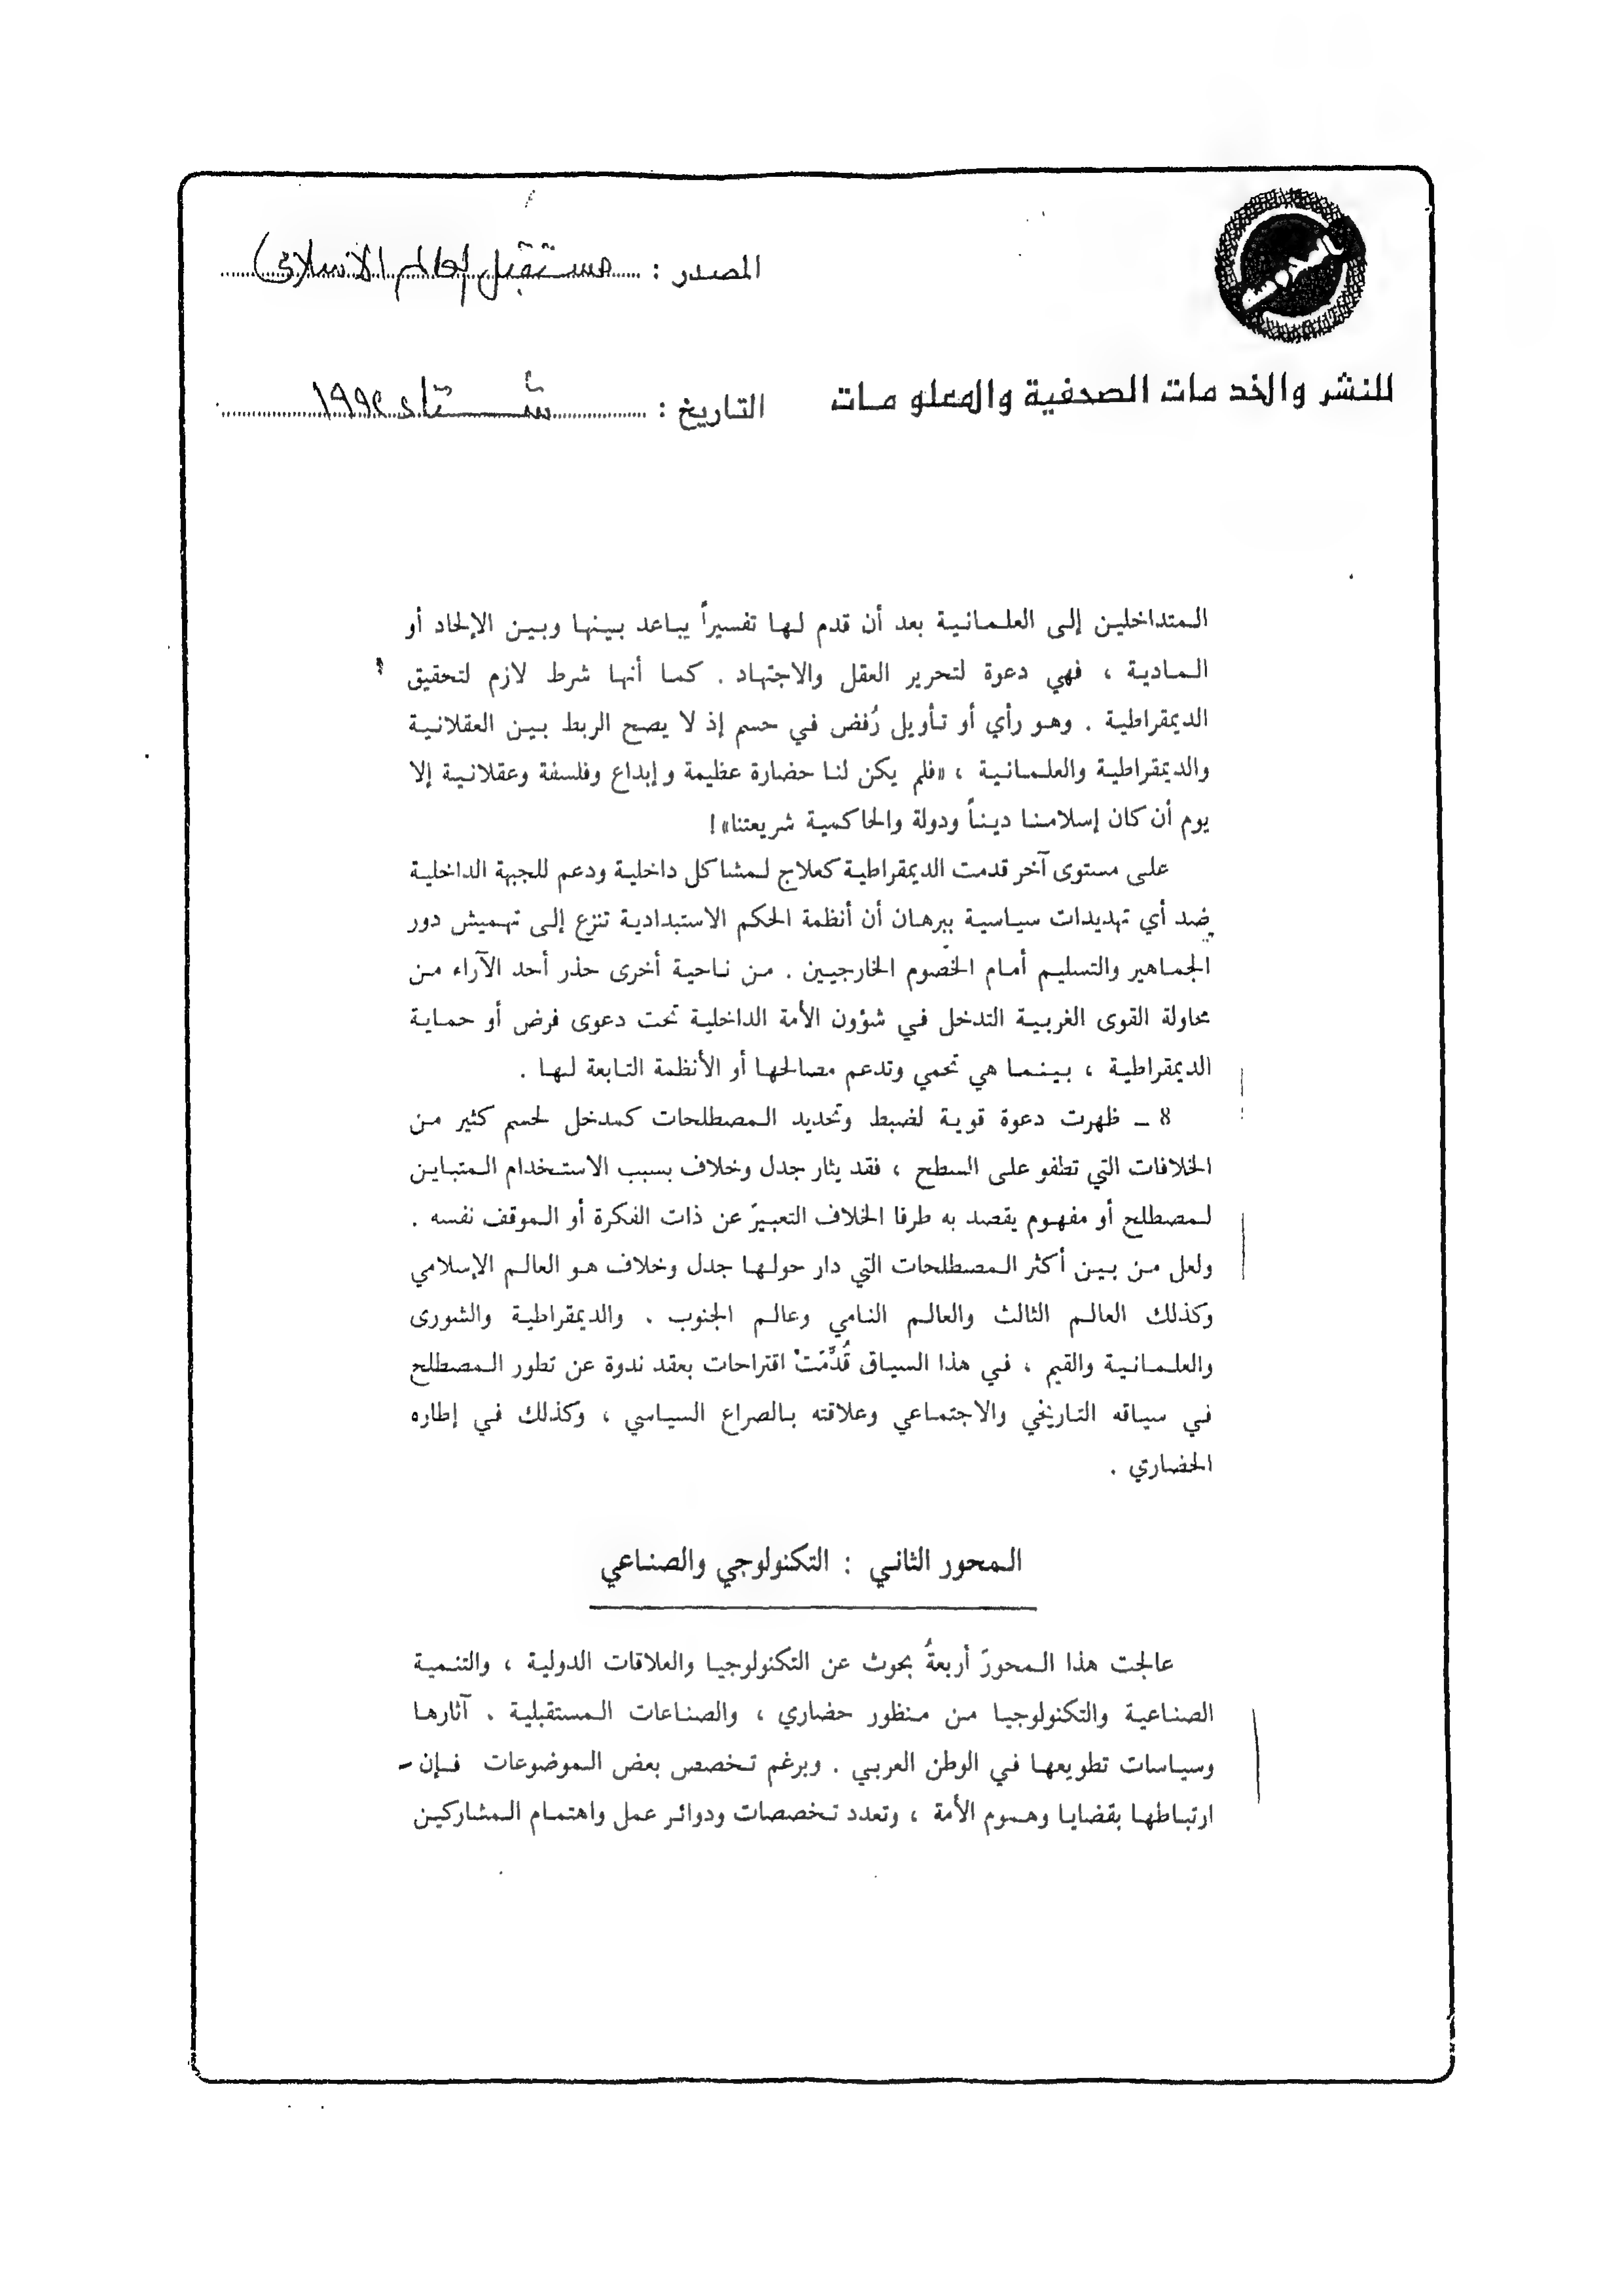 المصدر : مستقبل العالم الاسلامي
للنشر والخدمات الصحفية والمعلومات
التاريخ : شتاء ١٩٩٢
المتداخلين إلى العلمانية بعد أن قدم لها تفسيراً يباعد بينها وبين الإلحاد أو
المادية ، فهي دعوة لتحرير العقل والاجتهاد . كما أنها شرط لازم لتحقيق
الديمقراطية . وهو رأي أو تأويل رُفض في حسم إذ لا يصح الربط بين العقلانية
والديمقراطية والعلمانية ، «فلم يكن لنا حضارة عظيمة وإبداع وفلسفة وعقلانية إلا
يوم أن كان إسلامنا ديناً ودولة والحاكمية شريعتنا»!
على مستوى آخر قدمت الديمقراطية كعلاج لمشاكل داخلية ودعم للجبهة الداخلية
ضد أي تهديدات سياسية ببرهان أن أنظمة الحكم الاستبدادية تنزع إلى تهميش دور
الجماهير والتسليم أمام الخصوم الخارجيين . من ناحية أخرى حذر أحد الآراء من
محاولة القوى الغربية التدخل في شؤون الأمة الداخلية تحت دعوى فرض أو حماية
الديمقراطية ، بينما هي تحمي وتدعم مصالحها أو الأنظمة التابعة لها .
8 ـ ظهرت دعوة قوية لضبط وتحديد المصطلحات كمدخل لحسم كثير من
الخلافات التي تطفو على السطح ، فقد يثار جدل وخلاف بسبب الاستخدام المتباين
لمصطلح أو مفهوم يقصد به طرفا الخلاف التعبيرَ عن ذات الفكرة أو الموقف نفسه .
ولعل من بين أكثر المصطلحات التي دار حولها جدل وخلاف هو العالم الإسلامي
وكذلك العالم الثالث والعالم النامي وعالم الجنوب . والديمقراطية والشورى
والعلمانية والقيم ، في هذا السياق قُدَّمَتْ اقتراحات بعقد ندوة عن تطور المصطلح
في سياقه التاريخي والاجتماعي وعلاقته بالصراع السياسي ، وكذلك في إطاره
الحضاري .
المحور الثاني : التكنولوجي والصناعي
عالجت هذا المحورَ أربعةُ بحوث عن التكنولوجيا والعلاقات الدولية ، والتنمية
الصناعية والتكنولوجيا من منظور حضاري ، والصناعات المستقبلية . آثارها
وسياسات تطويعها في الوطن العربي . وبرغم تخصص بعض الموضوعات فإن
ارتباطها بقضايا وهموم الأمة ، وتعدد تخصصات ودوائر عمل واهتمام المشاركين